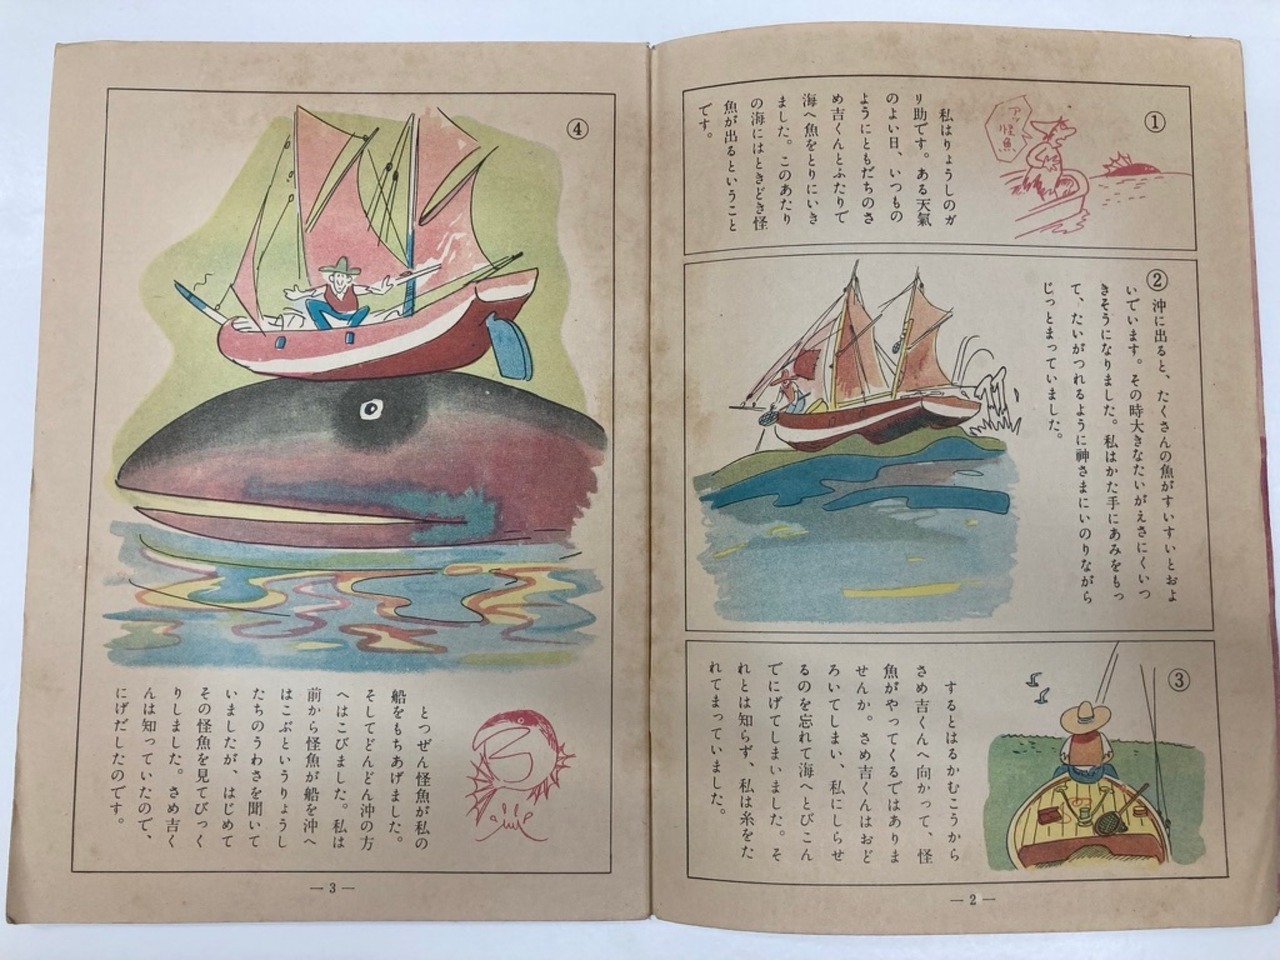 ①
アッ
怪
魚
私はりょうしのガ
リ助です。ある天氣
のよい日、いつもの
ようにともだちのさ
め吉くんとふたりで
海へ魚をとりにいき
ました。このあたり
の海にはときどき怪
魚が出るということ
です。
②
沖に出ると、たくさんの魚がすいすいとおよ
いでいます。その時大きなたいがえさにくいつ
きそうになりました。私はかた手にあみをもっ
て、たいがつれるように神さまにいのりながら
じっとまっていました。
③
するとはるかむこうから
さめ吉くんへ向かって、怪
魚がやってくるではありま
せんか。さめ吉くんはおど
ろいてしまい、私にしらせ
るのを忘れて海へとびこん
でにげてしまいました。そ
れとは知らず、私は糸をた
れてまっていました。
— 2 —
④
とつぜん怪魚が私の
船をもちあげました。
そしてどんどん沖の方
へはこびました。私は
前から怪魚が船を沖へ
はこぶというりょうし
たちのうわさを聞いて
いましたが、はじめて
その怪魚を見てびっく
りしました。さめ吉く
んは知っていたので、
にげだしたのです。
— 3 —